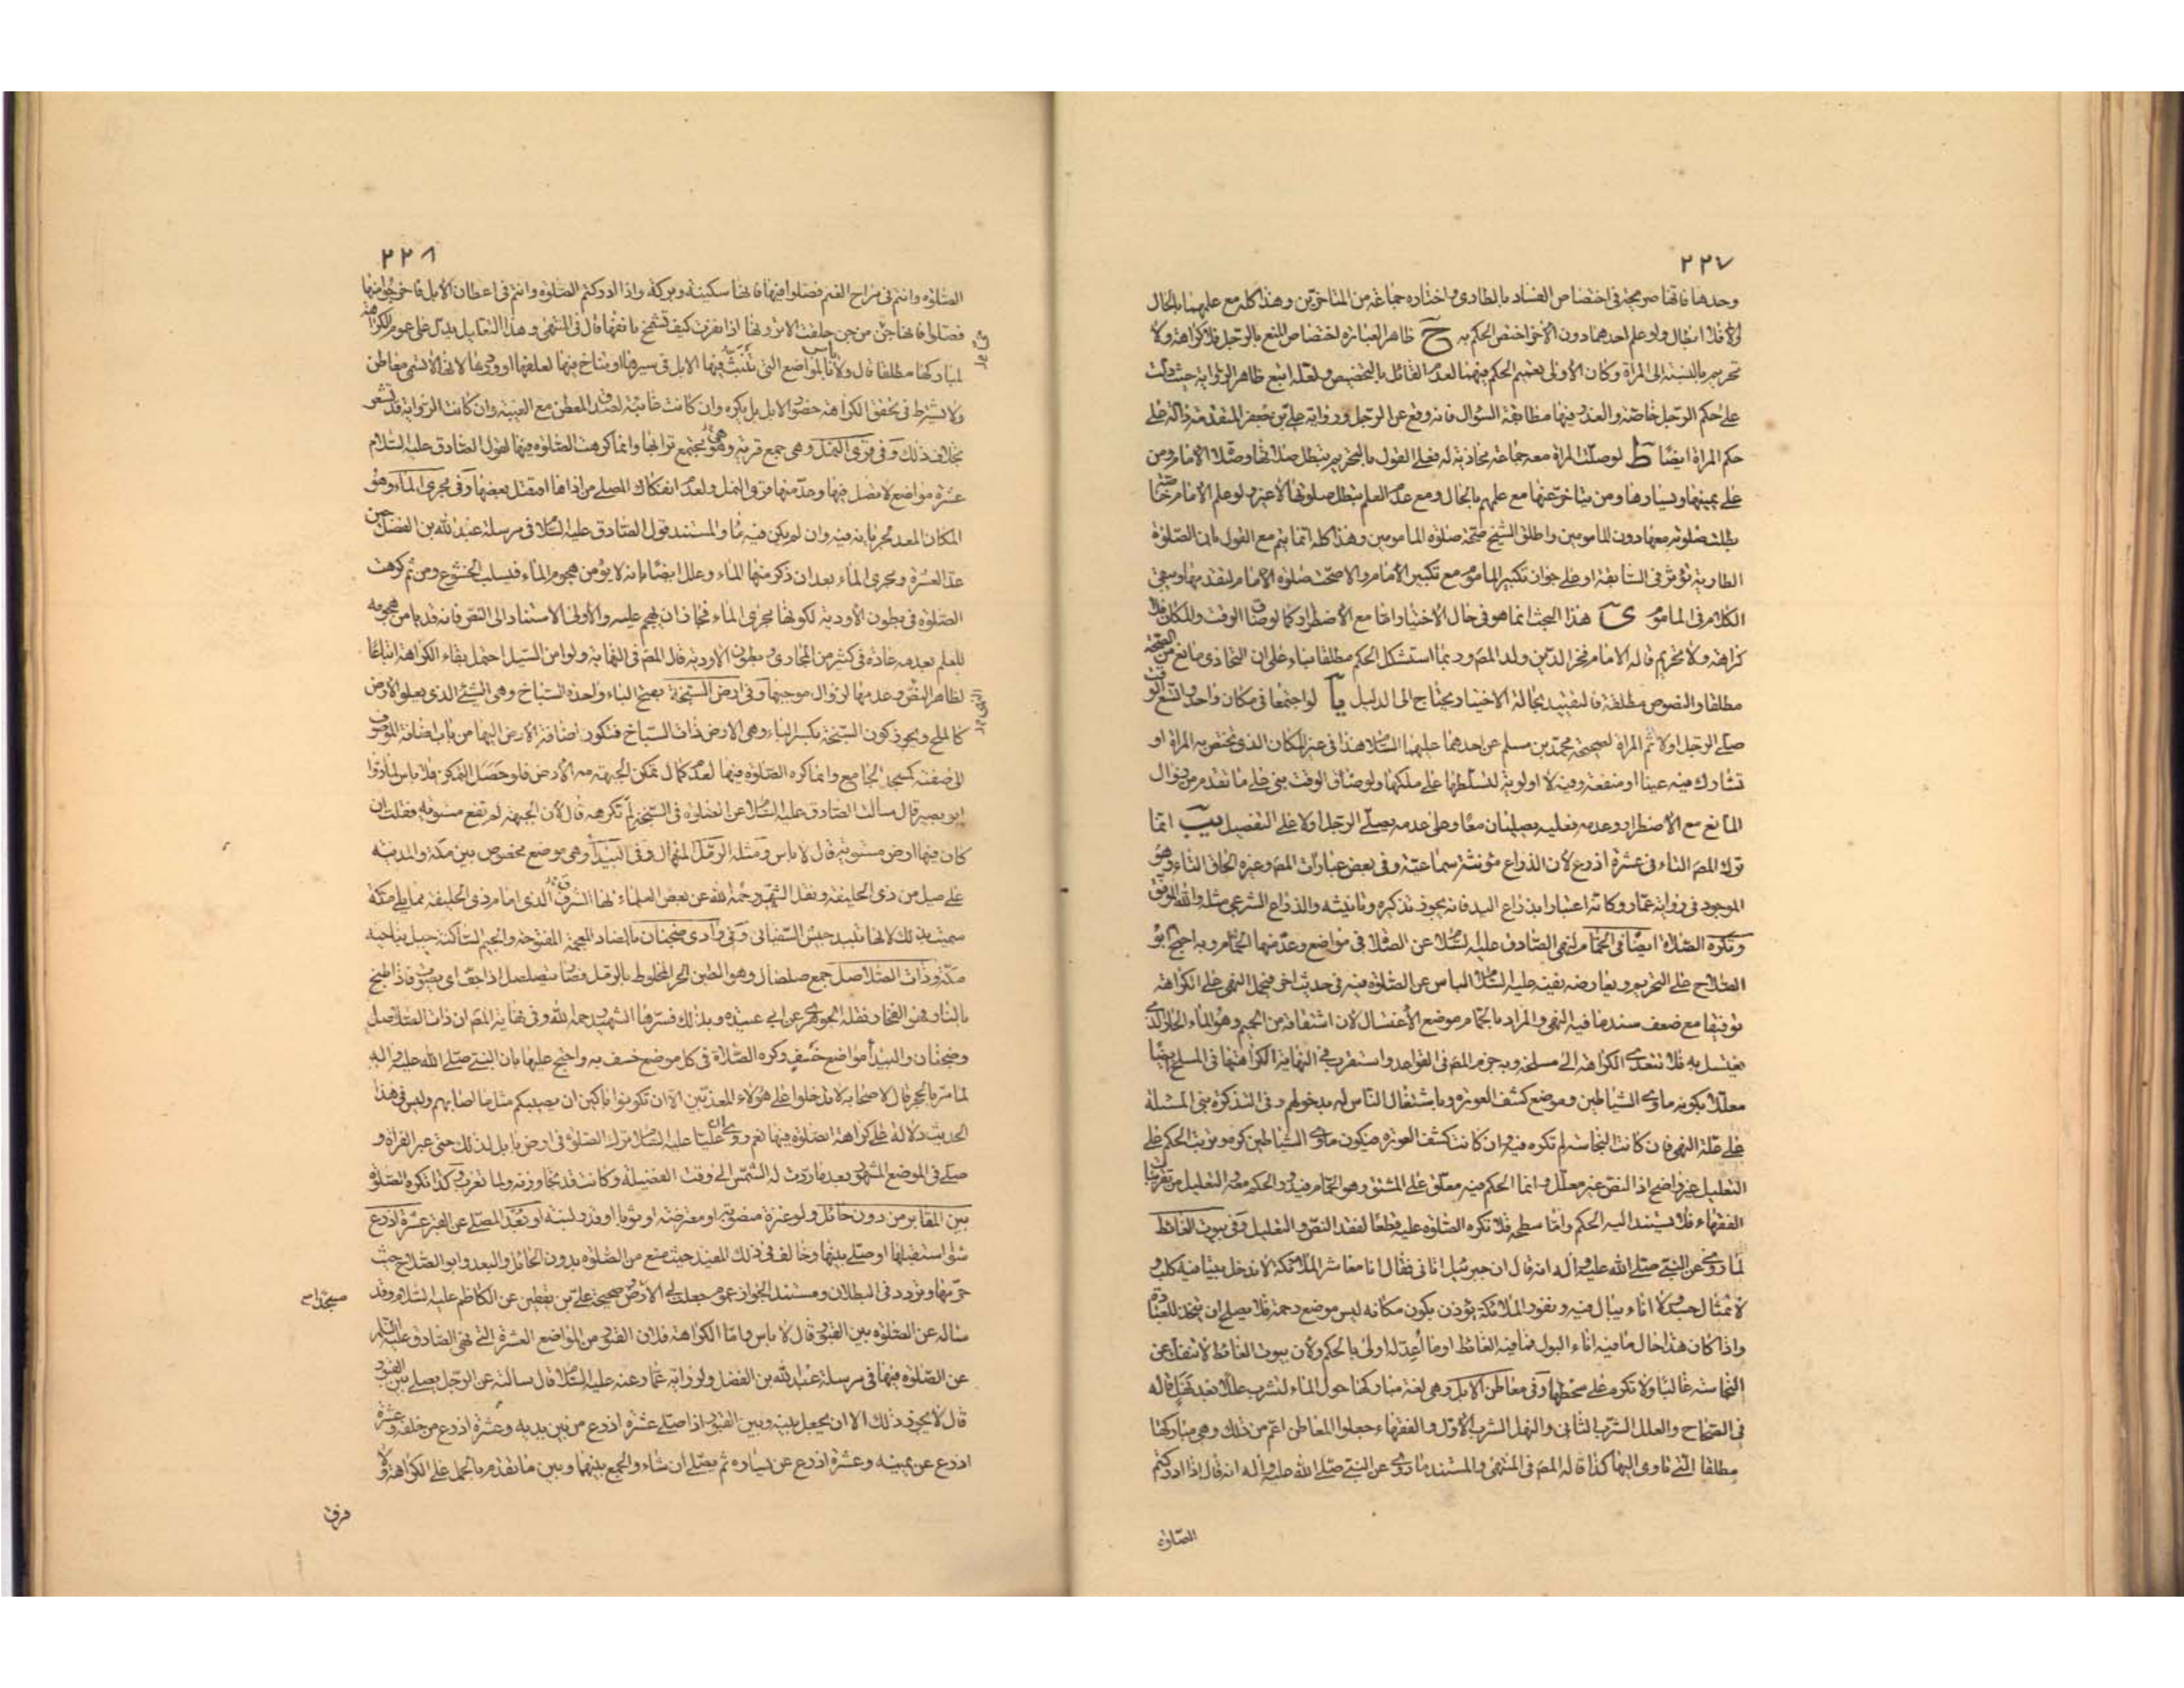 ٢٢٧
وحدها فانها صريحة في اختصاص الفساد بالطاري واختاره جماعة من المتاخرين وهذا كله مع علمهما بالحال
والا فلا ابطال ولو علم احدهما دون الاخر اختص الحكم به ح ظاهر العبارة اختصاص المنع بالرجل فلا كراهة ولا
تحريم بالنسبة الى المراة وكان الاولى تعميم الحكم فيهما لعدم القائل بالتخصيص ولعله اتبع ظاهر الرواية حيث دلت
على حكم الرجل خاصة والعذر فيها مطابقة السؤال فانه وقع عن الرجل ورواية علي بن جعفر المتقدمة دالة على
حكم المراة ايضا ط لو صلت المراة معه جماعة محاذية له فعلى القول بالتحريم يبطل صلاتها وصلاة الامام ومن
على يمينها ويسارها ومن يتاخر عنها مع علمهم بالحال ومع عدم العلم يبطل صلوتها لا غير ولو علم الامام خاصة
بطلت صلوته معها دون المامومين واطلق الشيخ صحة صلوة المامومين وهذا كله انما يتم مع القول بان الصلوة
الطارية تؤثر في السابقة او على جواز تكبير الماموم مع تكبير الامام والا صحت صلوة الامام لتقدمها وبقي
الكلام في الماموم ى هذا البحث انما هو في حال الاختيار اما مع الاضطرار كما لو ضاق الوقت والمكان فلا
كراهة ولا تحريم قاله الامام فخر الدين ولد المصر وربما استشكل الحكم مطلقا بناء على ان التحاذي مانع من الصحة
مطلقا والنصوص مطلقة فالتقييد بحالة الاختيار يحتاج الى الدليل يا لو اجتمعا في مكان واحد واتسع الوقت
صلى الرجل اولا ثم المراة لصحيحة محمد بن مسلم عن احدهما عليهما السلام هذا في غير المكان الذي تختص به المراة او
تشارك فيه عينا او منفعة وفيه لا اولوية لتسلطها على ملكها ولو ضاق الوقت بني على ما تقدم من زوال
المانع مع الاضطرار وعدمه فعليه يصليان معا وعلى عدمه يصلي الرجل اولا على التفصيل يب انما
ترك المصر التاء في عشرة اذرع لان الذراع مؤنثة سماعية وفي بعض عبارات المصر وغيره الحاق التاء وهو
الموجود في رواية عمار وكانه اعتبارا بذراع اليد فانه يجوز تذكيره وتانيثه والذراع الشرعي مثله والله الموفق
وتكره الصلاة ايضا في الحمام لنهي الصادق عليه السلام عن الصلاة في مواضع وعد منها الحمام وبه احتج ابو
الصلاح على التحريم ويعارضه نفيه عليه السلام الباس عن الصلوة فيه في حديث اخر فيحمل النهي على الكراهة
توفيقا مع ضعف سند ما فيه النهي والمراد بالحمام موضع الاغتسال لان اشتقاقه من الحميم وهو الماء الحار الذي
يغتسل به فلا تتعدى الكراهة الى مسلخه وبه جزم المصر في القواعد واستقرب في النهاية الكراهة في المسلخ ايضا
معللا بكونه ماوى الشياطين وموضع كشف العورة وباشتغال الناس له بدخولهم وفي التذكرة بنى المسئلة
على علة النهي فان كانت النجاسة لم تكره فيه وان كانت كشف العورة فيكون ماوى الشياطين كره وترتب الحكم على
التعليل غير واضح اذ النص غير معلل وانما الحكم فيه معلق على المشتق وهو الحمام فيدور الحكم معه والتعليل من تقريبات
الفقهاء فلا يستند اليه الحكم واما سطحه فلا تكره الصلوة عليه قطعا لفقد النص والتعليل وفي بيوت الغائط
لما روي عن النبي صلى الله عليه واله انه قال ان جبرئيل اتاني فقال انا معاشر الملائكة لا ندخل بيتا فيه كلب و
لا تمثال جسد ولا اناء يبال فيه ونفور الملائكة يؤذن بكون مكانه ليس موضع رحمة فلا يصلح ان يتخذ للعبادة
واذا كان هذا حال ما فيه اناء البول فما فيه الغائط او ما اعد له اولى بالحكم ولان بيوت الغائط لا تنفك عن
النجاسة غالبا ولا تكره على سطحها وفي معاطن الابل وهي لغة مباركها حول الماء لتشرب عللا بعد نهل قاله
في الصحاح والعلل الشرب الثاني والنهل الشرب الاول والفقهاء جعلوا المعاطن اعم من ذلك وهي مباركها
مطلقا التي تاوى اليها كذا قاله المصر في المنتهى والمستند ما روي عن النبي صلى الله عليه واله انه قال اذا ادركتم
الصلوة
٢٢٨
الصلوة وانتم في مراح الغنم فصلوا فيها فانها سكينة وبركة واذا ادركتم الصلوة وانتم في اعطان الابل فاخرجوا منها
فصلوا فانها جن من جن خلقت الا ترونها اذا نفرت كيف تشمخ بانفها قال في المنتهى وهذا التعليل يدل على عموم الكراهة
لمباركها مطلقا قال ولا باس بالمواضع التي تثبت فيها الابل في سيرها او تناخ فيها لعلفها او وردها لانها لا تسمى معاطن
ولا يشترط في تحقق الكراهة حضور الابل بل يكره وان كانت غائبة لصدق المعطن مع الغيبة وان كانت الرواية قد تشعر
بخلاف ذلك وفي قرى النمل وهي جمع قرية وهي مجتمع ترابها وانما كرهت الصلوة فيها لقول الصادق عليه السلام
عشرة مواضع لا تصل فيها وعد منها قرى النمل ولعدم انفكاك المصلي من اذاها او قتل بعضها وفي مجرى الماء وهو
المكان المعد لجريانه فيه وان لم يكن فيه ماء والمستند قول الصادق عليه السلام في مرسلة عبد الله بن الفضل حين
عد العشرة ومجرى الماء بعد ان ذكر منها الماء وعلل ايضا بانه لا يؤمن هجوم الماء فيسلب الخشوع ومن ثم كرهت
الصلوة في بطون الاودية لكونها مجرى الماء فجاز ان يهجم عليه والاولى الاستناد الى النص فانه قد يامن هجومه
للعلم بعدمه عادة في كثير من المجاري وبطون الاودية قال المصر في النهاية ولو امن السيل احتمل بقاء الكراهة اتباعا
لظاهر النص وعدمها لزوال موجبها وفي ارض السبخة بفتح الباء واحدة السباخ وهي الشيء الذي يعلو الارض
كالملح ويجوز كون السبخة بكسر الباء وهي الارض ذات السباخ فتكون اضافة الارض اليها من باب اضافة الموصوف
الى صفته كمسجد الجامع وانما كره الصلوة فيها لعدم كمال تمكن الجبهة من الارض فلو حصل التمكن فلا باس لما روا
ابو بصير قال سالت الصادق عليه السلام عن الصلوة في السبخة لم تكرهه قال لان الجبهة لم تقع مستوية فقلت ان
كان فيها ارض مستوية قال لا باس ومثله الرمل المنهال وفي البيداء وهي موضع مخصوص بين مكة والمدينة
على ميل من ذي الحليفة ونقل الشهيد رحمه الله عن بعض العلماء انها الشرف الذي امام ذي الحليفة مما يلي مكة
سميت بذلك لانها تبيد جيش السفياني وفي وادي ضجنان بالضاد المعجمة المفتوحة والجيم الساكنة جبل بناحية
مكة وذات الصلاصل جمع صلصال وهو الطين الحر المخلوط بالرمل فصار يتصلصل اذا جف اي يصوت فاذا طبخ
بالنار فهو الفخار ونقله الجوهري عن ابي عبيدة وبذلك فسرها الشهيد رحمه الله وفي نهاية المصر ان ذات الصلاصل
وضجنان والبيداء مواضع خسف وكره الصلاة في كل موضع خسف به واحتج عليها بان النبي صلى الله عليه واله
لما مر بالحجر قال لاصحابه لا تدخلوا على هؤلاء المعذبين الا ان تكونوا باكين ان يصيبكم مثل ما اصابهم وليس في هذا
الحديث دلالة على كراهة الصلوة فيها نعم روي ان عليا عليه السلام ترك الصلوة في ارض بابل لذلك حتى عبر الفرات و
صلى في الموضع المشهور بعد ما ردت له الشمس الى وقت الفضيلة وكانت قد تجاوزته ولما تغرب وكذا تكره الصلوة
بين المقابر من دون حائل ولو عنزة منصوبة او معترضة او ثوبا او قدر لبنة او بعد المصلي عن القبر عشرة اذرع
سواء استقبلها او صلى بينها وخالف في ذلك المفيد حيث منع من الصلوة بدون الحائل والبعد وابو الصلاح حيث
حرمها وتردد في البطلان ومستند الجواز عموم جعلت لي الارض صحيحة علي بن يقطين عن الكاظم عليه السلام وقد
ساله عن الصلوة بين القبور قال لا باس واما الكراهة فلان القبور من المواضع العشرة التي نهى الصادق عليه السلام
عن الصلوة فيها في مرسلة عبد الله بن الفضل ولرواية عمار عنه عليه السلام قال سالته عن الرجل يصلي بين القبور
قال لا يجوز ذلك الا ان يجعل بينه وبين القبور اذا صلى عشرة اذرع من بين يديه وعشرة اذرع من خلفه وعشرة
اذرع عن يمينه وعشرة اذرع عن يساره ثم يصلي ان شاء والجمع بينهما وبين ما تقدم بالحمل على الكراهة ولا
فرق